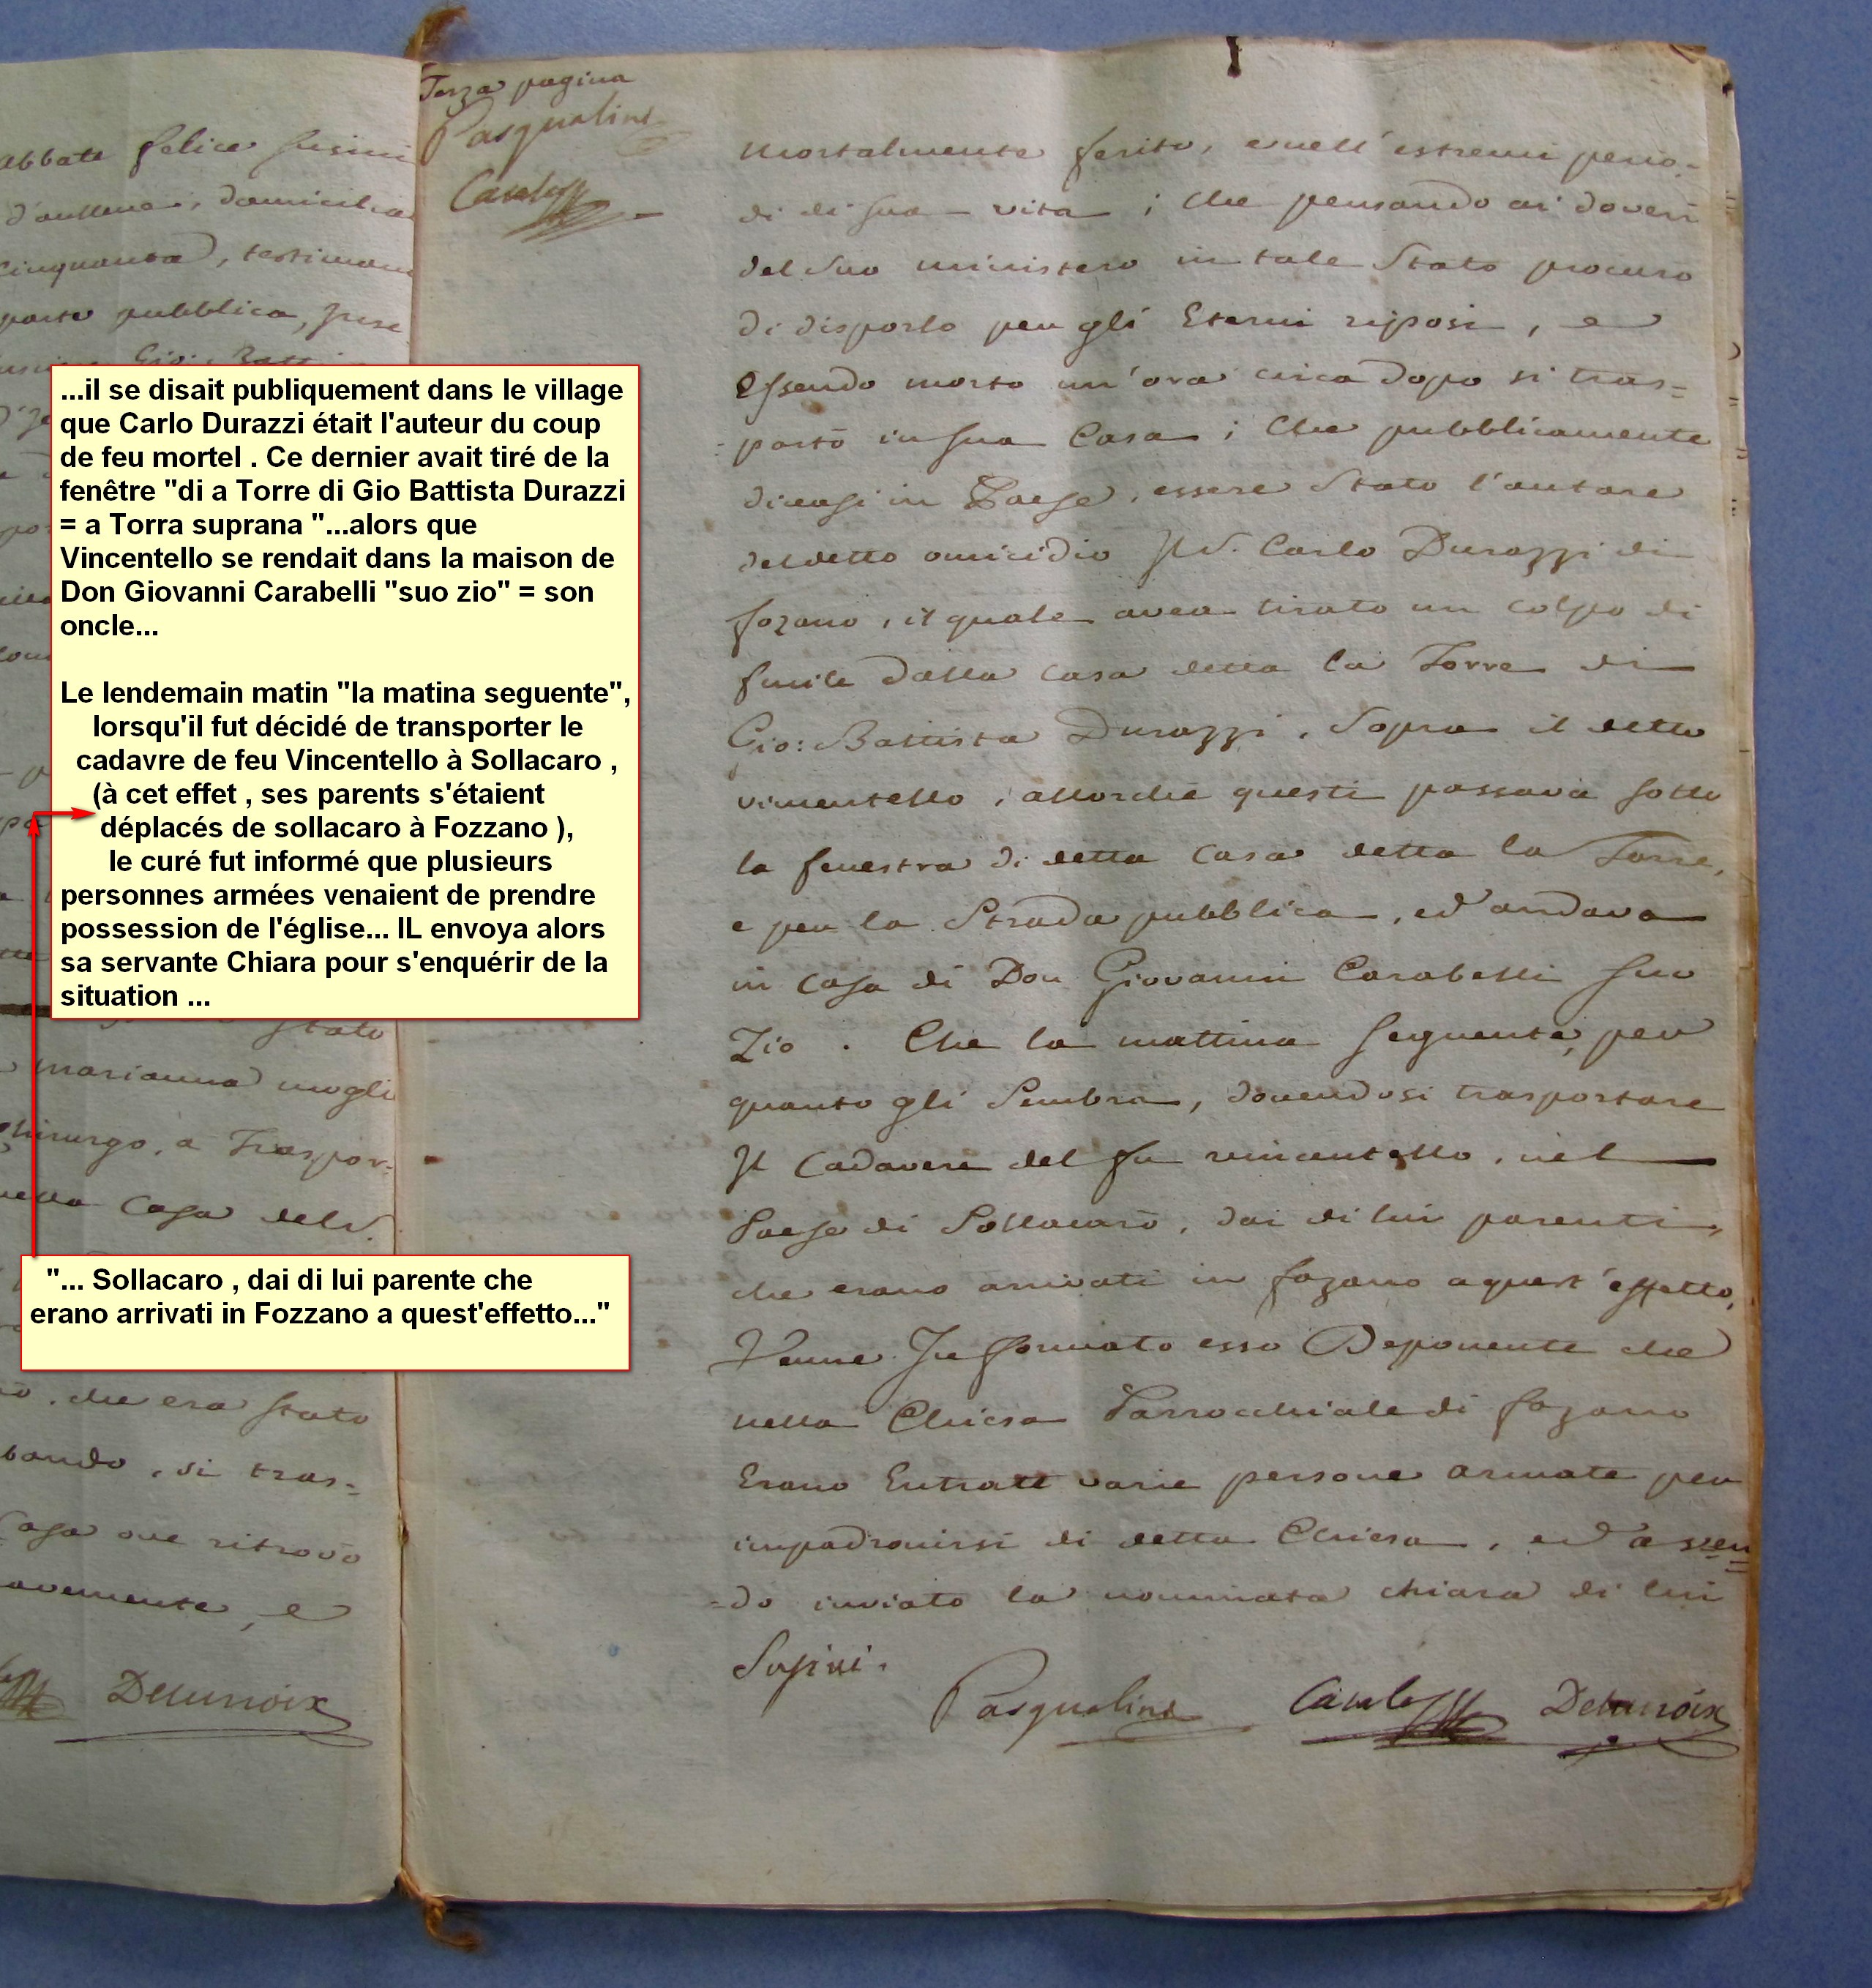 abbate felice susini
d'aullene, domicilia
cinquanta, testimon
parte pubblica,
stato
marianna mogli
chirurgo, a Traspor-
nella Casa del S.
che era stato
bondo, si tras=
Casa ove ritrovò
avemente, e
Delunoix
Terza pagina
Pasqualini
Casale
mortalmente ferito, e nell'estremi perio-
di di sua vita; che pensando ai doveri
del suo ministero in tale Stato procurò
di disporlo per gli Eterni riposi, e
Essendo morto un'ora circa dopo si tras=
portò in sua Casa; Che pubblicamente
diceasi in Paese, essere Stato l'autore
del detto omicidio Il S. Carlo Durazzi di
fozano, il quale avea tirato un colpo di
fucile dalla casa detta la Torre di
Gio: Battista Durazzi, Sopra il detto
vincentello, allorchè questi passava sotto
la fenestra di detta casa detta la Torre,
e per la Strada pubblica, ed andava
in casa di Don Giovanni Carabelli suo
Zio. Che la mattina seguente, per
quanto gli Sembra, dovendosi trasportare
Il Cadavere del fu vincentello, nel
Paese di Sollacarò, dai di lui parenti,
che erano arrivati in fozano a quest'effetto,
Venne Informato esso Deponente che
nella Chiesa Parrocchiale di fozano
Erano Entrate varie persone armate per
impadronirsi di detta Chiesa, ed assen
=do inviato la nominata chiara di lui
Pasqualini Casale Delunoix
...il se disait publiquement dans le village
que Carlo Durazzi était l'auteur du coup
de feu mortel . Ce dernier avait tiré de la
fenêtre "di a Torre di Gio Battista Durazzi
= a Torra suprana "...alors que
Vincentello se rendait dans la maison de
Don Giovanni Carabelli "suo zio" = son
oncle...
Le lendemain matin "la matina seguente",
lorsqu'il fut décidé de transporter le
cadavre de feu Vincentello à Sollacaro ,
(à cet effet , ses parents s'étaient
déplacés de sollacaro à Fozzano ),
le curé fut informé que plusieurs
personnes armées venaient de prendre
possession de l'église... IL envoya alors
sa servante Chiara pour s'enquérir de la
situation ...
"... Sollacaro , dai di lui parente che
erano arrivati in Fozzano a quest'effetto..."